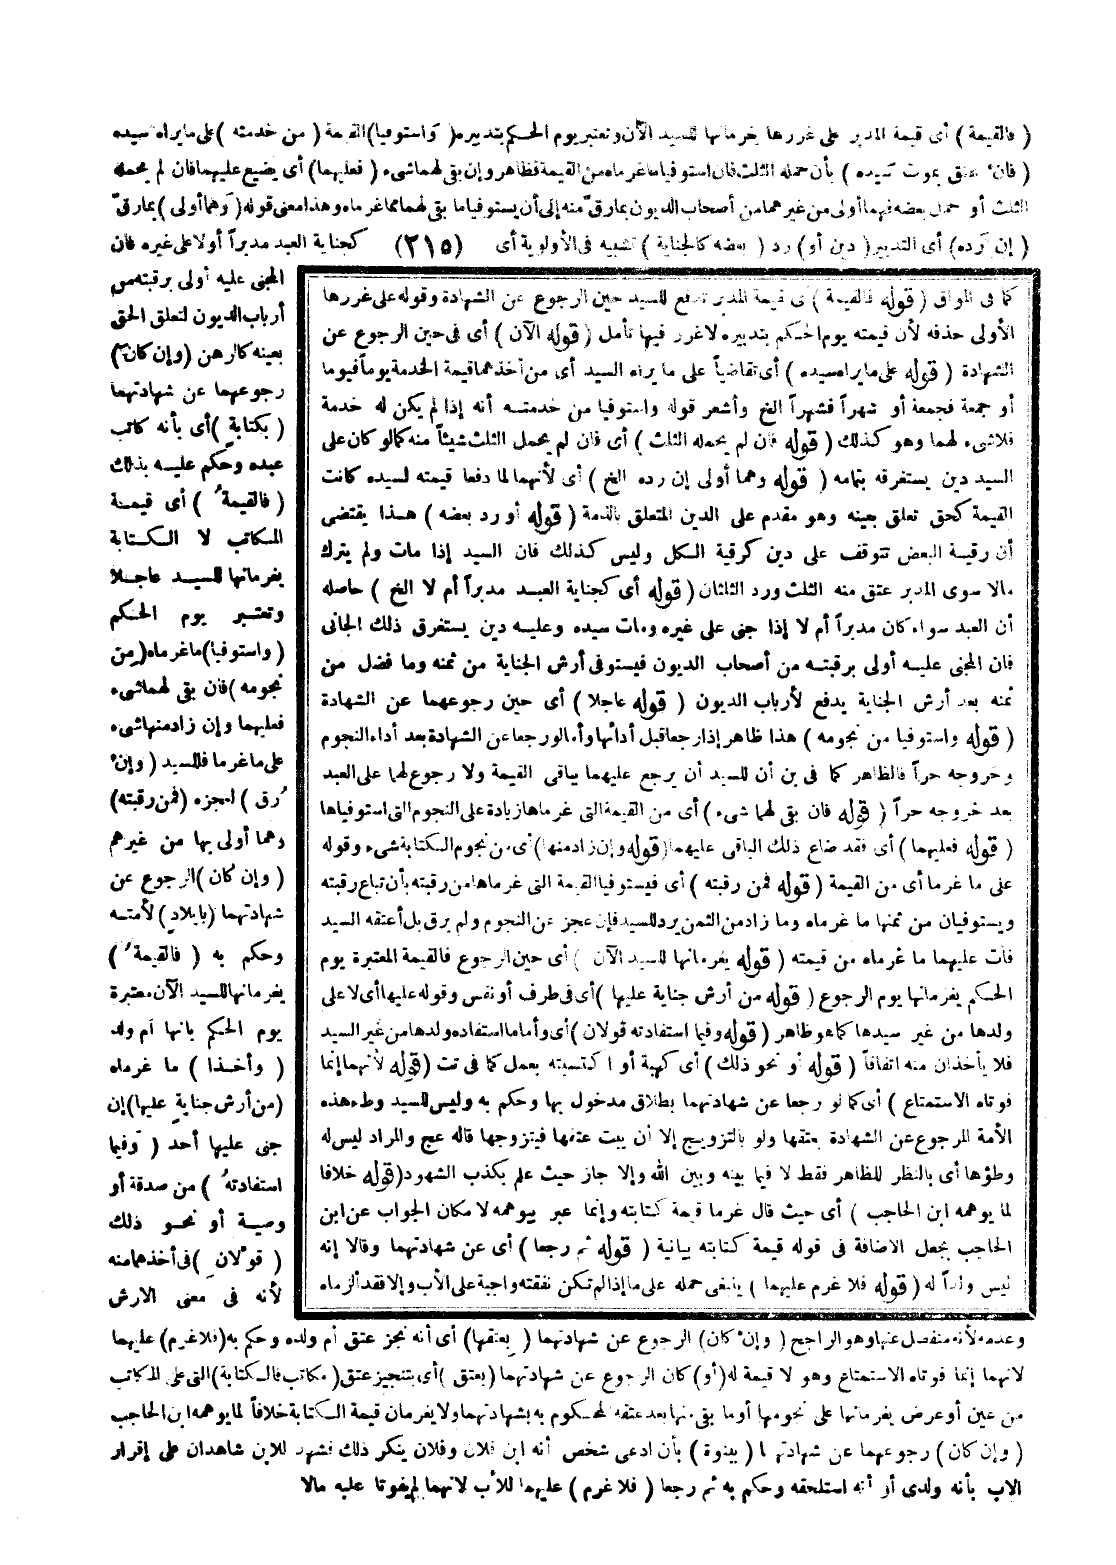 ( فالقيمة ) أى قيمة المدبر على غررها يغرمانها للسيد الآن وتعتبر يوم الحكم بتدبيره ( واستوفيا ) القيمة ( من خدمته ) على ما يراه سيده
( فان عتق بموت سيده ) بأن حمله الثلث فان استوفيا ما غرماه من القيمة فظاهر وإن بقى لهما شىء ( فعليهما ) أى يضيع عليهما فان لم يحمله
الثلث أو حمل بعضه فهما أولى من غيرهما من أصحاب الديون بما رقّ منه إلى أن يستوفيا ما بقى لهما مما غرماه وهذا معنى قوله ( وهما أولى ) بما رقّ
( إن رده ) أى التدبير ( دين أو ) رد ( بعضه كالجناية ) تشبيه فى الأولوية أى (٢١٥) كجناية العبد مدبراً أولا على غيره فان
المجنى عليه أولى برقبته من
أرباب الديون لتعلق الحق
بعينه كالرهن ( وإن كان )
رجوعهما عن شهادتهما
( بكتابةٍ ) أى بأنه كاتب
عبده وحكم عليه بذلك
( فالقيمةُ ) أى قيمة
المكاتب لا الكتابة
يغرمانها للسيد عاجلا
وتعتبر يوم الحكم
( واستوفيا ) ما غرماه ( من
نجومه ) فان بقى لهما شىء
فعليهما وإن زاد منها شىء
على ما غرما فللسيد ( وإن
رق ) لعجزه ( فمن رقبته )
وهما أولى بها من غيرهم
( وإن كان ) الرجوع عن
شهادتهما ( بايلادٍ ) لأمته
وحكم به ( فالقيمةُ )
يغرمانها للسيد الآن معتبرة
يوم الحكم بانها أم ولد
( وأخذا ) ما غرماه
( من أرش جنايةٍ عليها ) إن
جنى عليها أحد ( وفيما
استفادتهُ ) من صدقة أو
وصية أو نحو ذلك
( قولانِ ) فى أخذهما منه
لأنه فى معنى الارش
كما فى المواق ( قوله فالقيمة ) أى قيمة المدبر تدفع للسيد حين الرجوع عن الشهادة وقوله على غررها
الأولى حذفه لأن قيمته يوم الحكم بتدبيره لا غرر فيها تأمل ( قوله الآن ) أى فى حين الرجوع عن
الشهادة ( قوله على ما يراه سيده ) أى تقاضياً على ما يراه السيد أى من أخذهما قيمة الخدمة يوماً فيوما
أو جمعة فجمعة أو شهراً فشهراً الخ وأشعر قوله واستوفيا من خدمته أنه إذا لم يكن له خدمة
فلا شىء لهما وهو كذلك ( قوله فان لم يحمله الثلث ) أى فان لم يحمل الثلث شيئاً منه كما لو كان على
السيد دين يستغرقه بتمامه ( قوله وهما أولى إن رده الخ ) أى لأنهما لما دفعا قيمته لسيده كانت
القيمة كحق تعلق بعينه وهو مقدم على الدين المتعلق بالذمة ( قوله أو رد بعضه ) هذا يقتضى
أن رقية البعض تتوقف على دين كرقية الكل وليس كذلك فان السيد إذا مات ولم يترك
مالا سوى المدبر عتق منه الثلث ورد الثلثان ( قوله أى كجناية العبد مدبراً أم لا الخ ) حاصله
أن العبد سواء كان مدبراً أم لا إذا جنى على غيره ومات سيده وعليه دين يستغرق ذلك الجانى
فان المجنى عليه أولى برقبته من أصحاب الديون فيستوفى أرش الجناية من ثمنه وما فضل من
ثمنه بعد أرش الجناية يدفع لأرباب الديون ( قوله عاجلا ) أى حين رجوعهما عن الشهادة
( قوله واستوفيا من نجومه ) هذا ظاهر إذا رجعا قبل أدائها وأما لو رجعا عن الشهادة بعد أداء النجوم
وخروجه حراً فالظاهر كما فى بن أن للسيد أن يرجع عليهما بباقى القيمة ولا رجوع لهما على العبد
بعد خروجه حراً ( قوله فان بقى لهما شىء ) أى من القيمة التى غرماها زيادة على النجوم التى استوفياها
( قوله فعليهما ) أى فقد ضاع ذلك الباقى عليهما ( قوله وإن زاد منها ) أى من نجوم الكتابة شىء وقوله
على ما غرما أى من القيمة ( قوله فمن رقبته ) أى فيستوفيا القيمة التى غرماها من رقبته بأن تباع رقبته
ويستوفيان من ثمنها ما غرماه وما زاد من الثمن يرد للسيد فإن عجز عن النجوم ولم يرق بل أعتقه السيد
فات عليهما ما غرماه من قيمته ( قوله يغرمانها للسيد الآن ) أى حين الرجوع فالقيمة المعتبرة يوم
الحكم يغرمانها يوم الرجوع ( قوله من أرش جناية عليها ) أى فى طرف أو نفس وقوله عليها أى لا على
ولدها من غير سيدها كما هو ظاهر ( قوله وفيما استفادته قولان ) أى وأما ما استفاده ولدها من غير السيد
فلا يأخذان منه اتفاقاً ( قوله أو نحو ذلك ) أى كهبة أو اكتسبته بعمل كما فى تت ( قوله لأنهما إنما
فوتاه الاستمتاع ) أى كما لو رجعا عن شهادتهما بطلاق مدخول بها وحكم به وليس للسيد وطء هذه
الأمة المرجوع عن الشهادة بعتقها ولو بالتزويج إلا أن يبت عتقها فيتزوجها قاله عج والمراد ليس له
وطؤها أى بالنظر للظاهر فقط لا فيما بينه وبين الله وإلا جاز حيث علم بكذب الشهود ( قوله خلافا
لما يوهمه ابن الحاجب ) أى حيث قال غرما قيمة كتابته وإنما عبر بيوهمه لا مكان الجواب عن ابن
الحاجب بجعل الاضافة فى قوله قيمة كتابته بيانية ( قوله ثم رجعا ) أى عن شهادتهما وقالا إنه
ليس ولداً له ( قوله فلا غرم عليهما ) ينبغى حمله على ما إذا لم تكن نفقته واجبة على الأب وإلا فقد ألزماه
وعدمه لأنه منفصل عنها وهو الراجح ( وإن كان ) الرجوع عن شهادتهما ( بعتقها ) أى أنه نجز عتق أم ولده وحكم به ( فلا غرم ) عليهما
لانهما إنما فوتاه الاستمتاع وهو لا قيمة له ( أو ) كان الرجوع عن شهادتهما ( بعتق ) أى بتنجيز عتق ( مكاتب فالكتابة ) التى على المكاتب
من عين أو عرض يغرمانها على نجومها أو ما بقى منها بعد عتقه المحكوم به بشهادتهما ولا يغرمان قيمة الكتابة خلافاً لما يوهمه ابن الحاجب
( وإن كان ) رجوعهما عن شهادتهما ( ببنوة ) بأن ادعى شخص أنه ابن فلان وفلان ينكر ذلك فشهد للابن شاهدان على إقرار
الاب بأنه ولدى أو أنه استلحقه وحكم به ثم رجعا ( فلا غرم ) عليهما للأب لانهما لم يفوتا عليه مالا